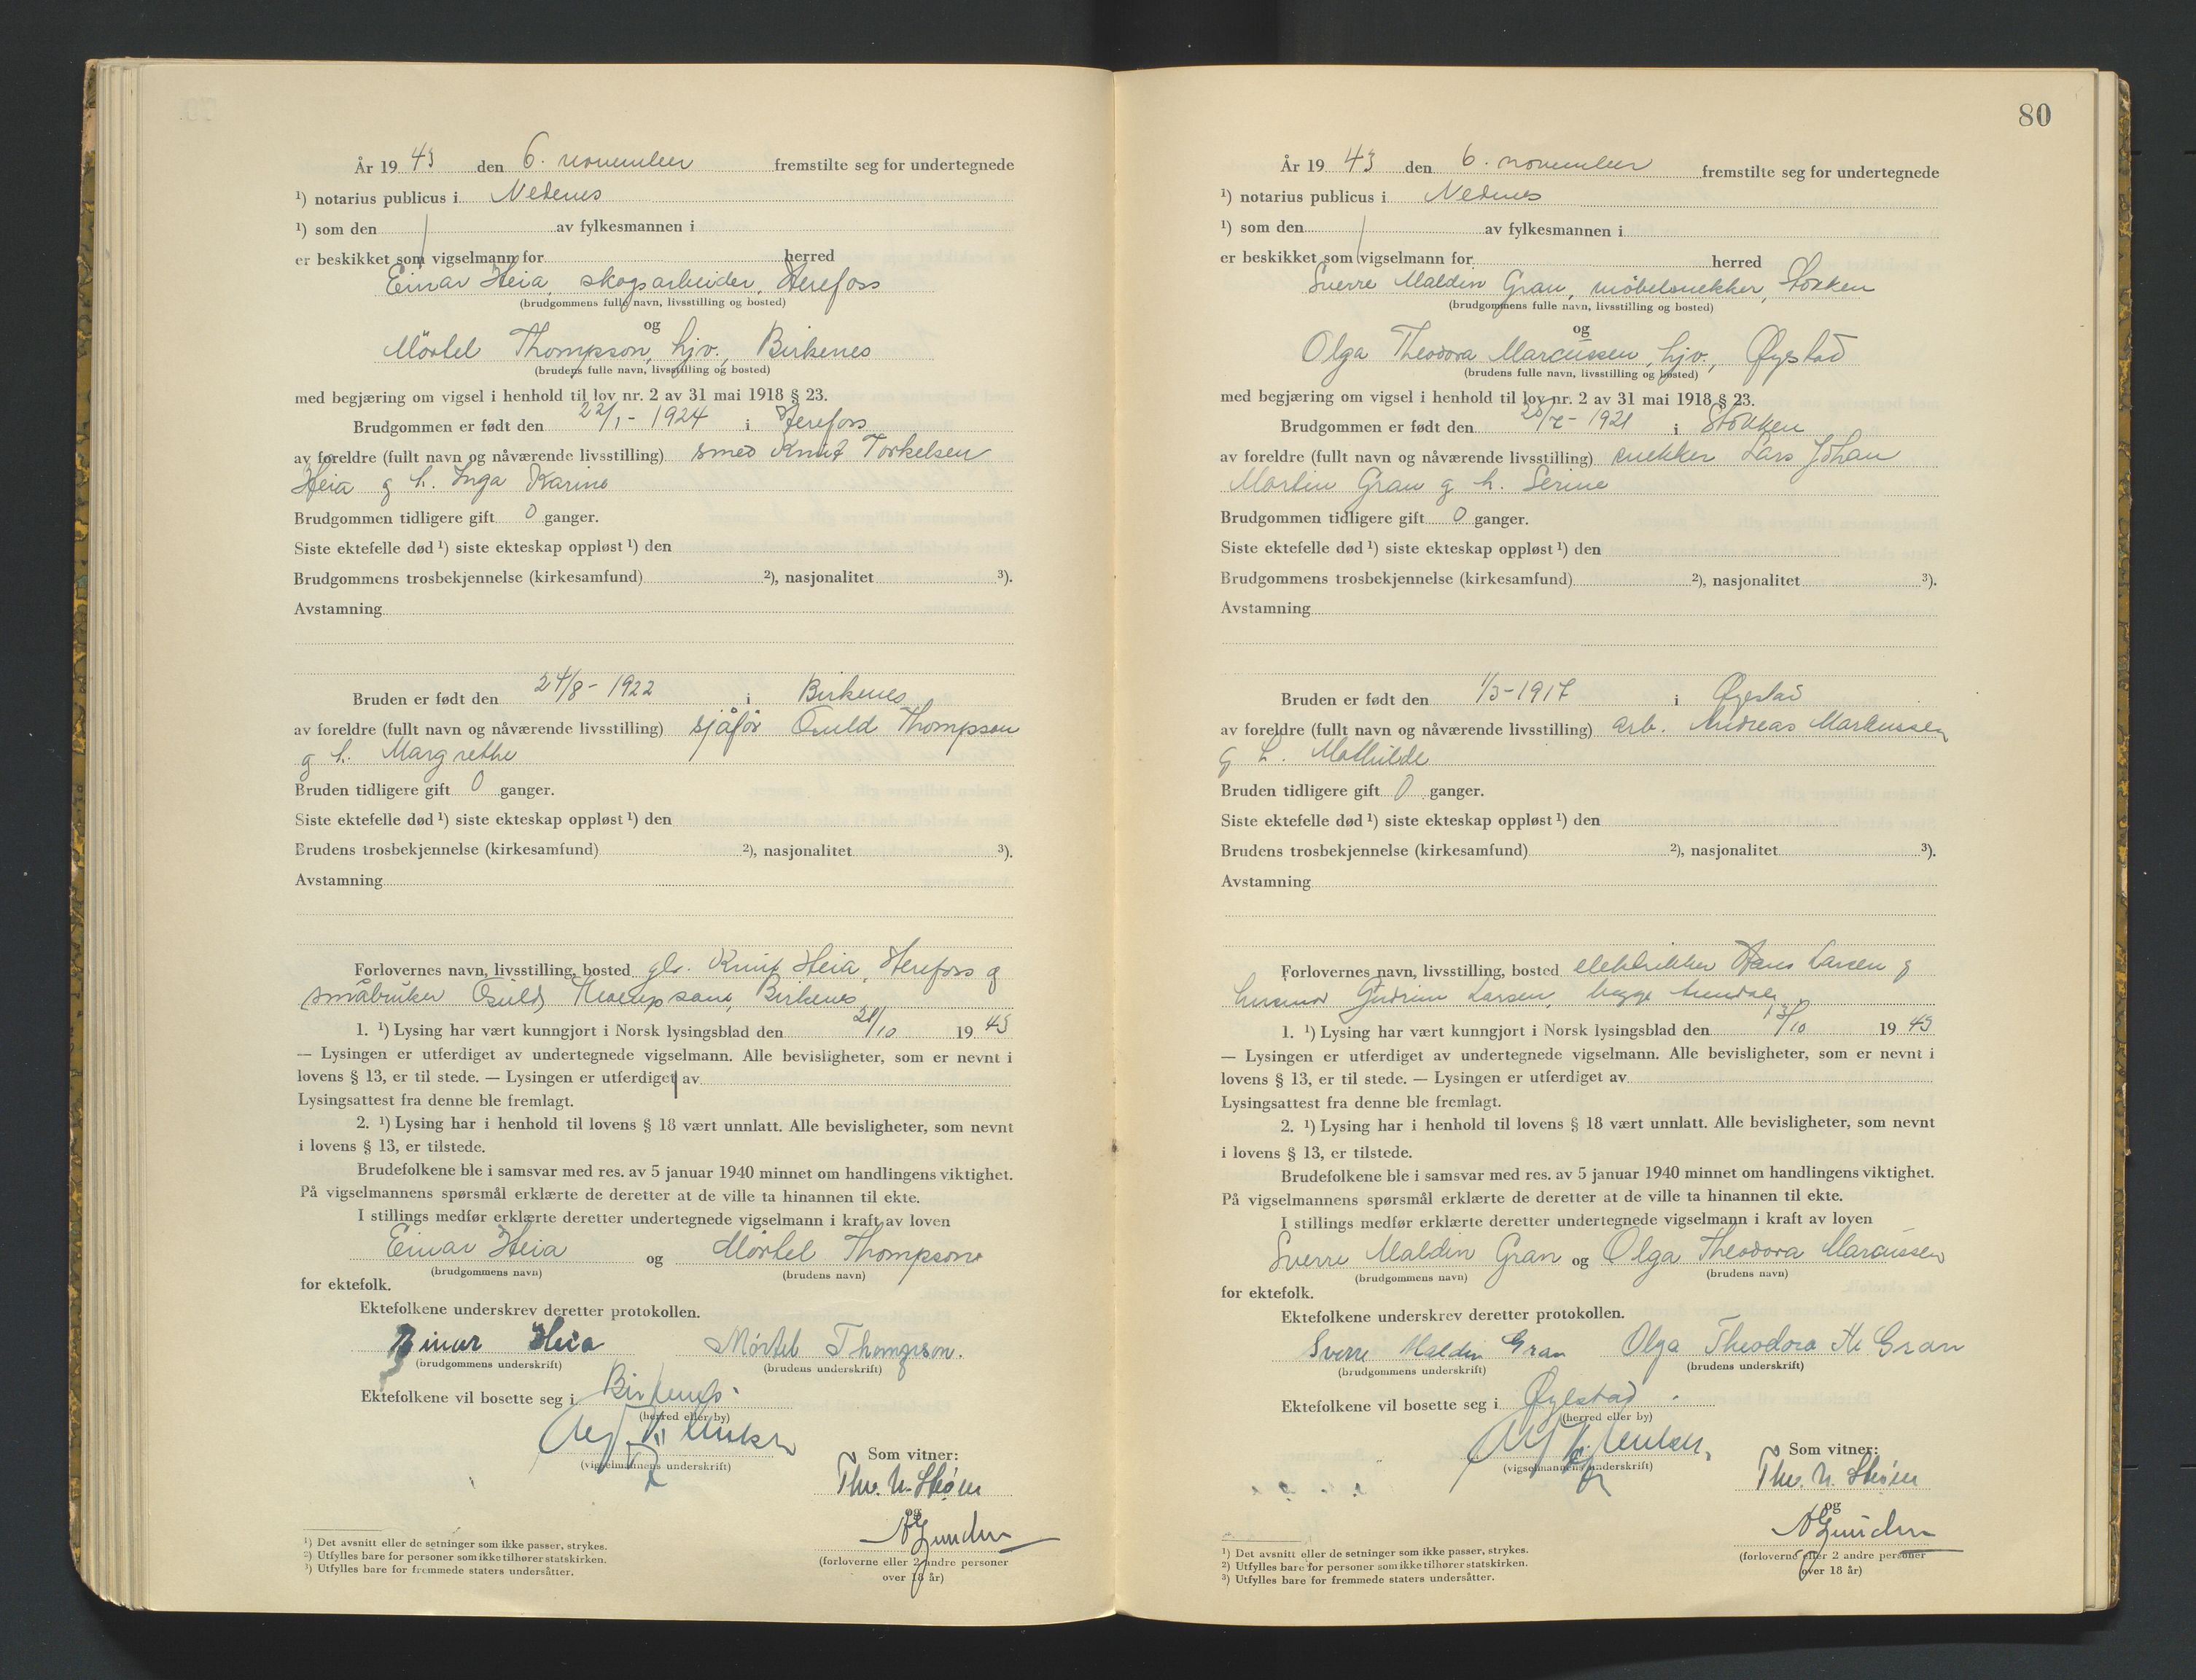 År 19 43 den 6. november fremstilte seg for undertegnede
¹) notarius publicus i Nedenes
¹) som den av fylkesmannen i
er beskikket som vigselmann for herred
Einar Heia, skogsarbeider, Herefoss
(brudgommens fulle navn, livsstilling og bosted)
og
Mörtel Thompson, hjv., Birkenes
(brudens fulle navn, livsstilling og bosted)
med begjæring om vigsel i henhold til lov nr. 2 av 31 mai 1918 § 23.
Brudgommen er født den 22/1 - 1924 i Herefoss
av foreldre (fullt navn og nåværende livsstilling) smed Knut Torkelsen
Heia g h. Inga Karine
Brudgommen tidligere gift 0 ganger.
Siste ektefelle død ¹) siste ekteskap oppløst ¹) den
Brudgommens trosbekjennelse (kirkesamfund) ²), nasjonalitet ³).
Avstamning
Bruden er født den 24/8 - 1922 i Birkenes
av foreldre (fullt navn og nåværende livsstilling) sjåfør Osuld Thompson
g h. Margrethe
Bruden tidligere gift 0 ganger.
Siste ektefelle død ¹) siste ekteskap oppløst ¹) den
Brudens trosbekjennelse (kirkesamfund) ²), nasjonalitet ³).
Avstamning
Forlovernes navn, livsstilling, bosted Knut Heia, Herefoss g
småbruker Osuld Thompson, Birkenes
1. ¹) Lysing har vært kunngjort i Norsk lysingsblad den /10 19 43
— Lysingen er utferdiget av undertegnede vigselmann. Alle bevisligheter, som er nevnt i
lovens § 13, er til stede. — Lysingen er utferdiget av
Lysingsattest fra denne ble fremlagt.
2. ¹) Lysing har i henhold til lovens § 18 vært unnlatt. Alle bevisligheter, som nevnt
i lovens § 13, er tilstede.
Brudefolkene ble i samsvar med res. av 5 januar 1940 minnet om handlingens viktighet.
På vigselmannens spørsmål erklærte de deretter at de ville ta hinannen til ekte.
I stillings medfør erklærte deretter undertegnede vigselmann i kraft av loven
Einar Heia og Mörtel Thompson
(brudgommens navn) (brudens navn)
for ektefolk.
Ektefolkene underskrev deretter protokollen.
Einar Heia Mörtel Thompson.
(brudgommens underskrift) (brudens underskrift)
Ektefolkene vil bosette seg i Birkenes
(herred eller by)
(vigselmannens underskrift)
Som vitner:
og
(forloverne eller 2 andre personer
over 18 år)
¹) Det avsnitt eller de setninger som ikke passer, strykes.
²) Utfylles bare for personer som ikke tilhører statskirken.
³) Utfylles bare for fremmede staters undersåtter.
80
År 19 43 den 6. november fremstilte seg for undertegnede
¹) notarius publicus i Nedenes
¹) som den av fylkesmannen i
er beskikket som vigselmann for herred
Sverre Maldin Gran, møbelsnekker, Stokken
(brudgommens fulle navn, livsstilling og bosted)
og
Olga Theodora Marcussen, hjv., Øyestad
(brudens fulle navn, livsstilling og bosted)
med begjæring om vigsel i henhold til lov nr. 2 av 31 mai 1918 § 23.
Brudgommen er født den 1921 i Stokken
av foreldre (fullt navn og nåværende livsstilling) snekker Lars Johan
Martin Gran g h. Serine
Brudgommen tidligere gift 0 ganger.
Siste ektefelle død ¹) siste ekteskap oppløst ¹) den
Brudgommens trosbekjennelse (kirkesamfund) ²), nasjonalitet ³).
Avstamning
Bruden er født den 1/3 - 1917 i Øyestad
av foreldre (fullt navn og nåværende livsstilling) arb. Andreas Markussen
g h. Mathilde
Bruden tidligere gift 0 ganger.
Siste ektefelle død ¹) siste ekteskap oppløst ¹) den
Brudens trosbekjennelse (kirkesamfund) ²), nasjonalitet ³).
Avstamning
Forlovernes navn, livsstilling, bosted elektrikker Hans Larsen g
husmor Gudrun Larsen, begge Arendal
1. ¹) Lysing har vært kunngjort i Norsk lysingsblad den 13/10 19 43
— Lysingen er utferdiget av undertegnede vigselmann. Alle bevisligheter, som er nevnt i
lovens § 13, er til stede. — Lysingen er utferdiget av
Lysingsattest fra denne ble fremlagt.
2. ¹) Lysing har i henhold til lovens § 18 vært unnlatt. Alle bevisligheter, som nevnt
i lovens § 13, er tilstede.
Brudefolkene ble i samsvar med res. av 5 januar 1940 minnet om handlingens viktighet.
På vigselmannens spørsmål erklærte de deretter at de ville ta hinannen til ekte.
I stillings medfør erklærte deretter undertegnede vigselmann i kraft av loven
Sverre Maldin Gran og Olga Theodora Marcussen
(brudgommens navn) (brudens navn)
for ektefolk.
Ektefolkene underskrev deretter protokollen.
Sverre Maldin Gran Olga Theodora M Gran
(brudgommens underskrift) (brudens underskrift)
Ektefolkene vil bosette seg i Øyestad.
(herred eller by)
(vigselmannens underskrift)
Som vitner:
og
(forloverne eller 2 andre personer
over 18 år)
¹) Det avsnitt eller de setninger som ikke passer, strykes.
²) Utfylles bare for personer som ikke tilhører statskirken.
³) Utfylles bare for fremmede staters undersåtter.